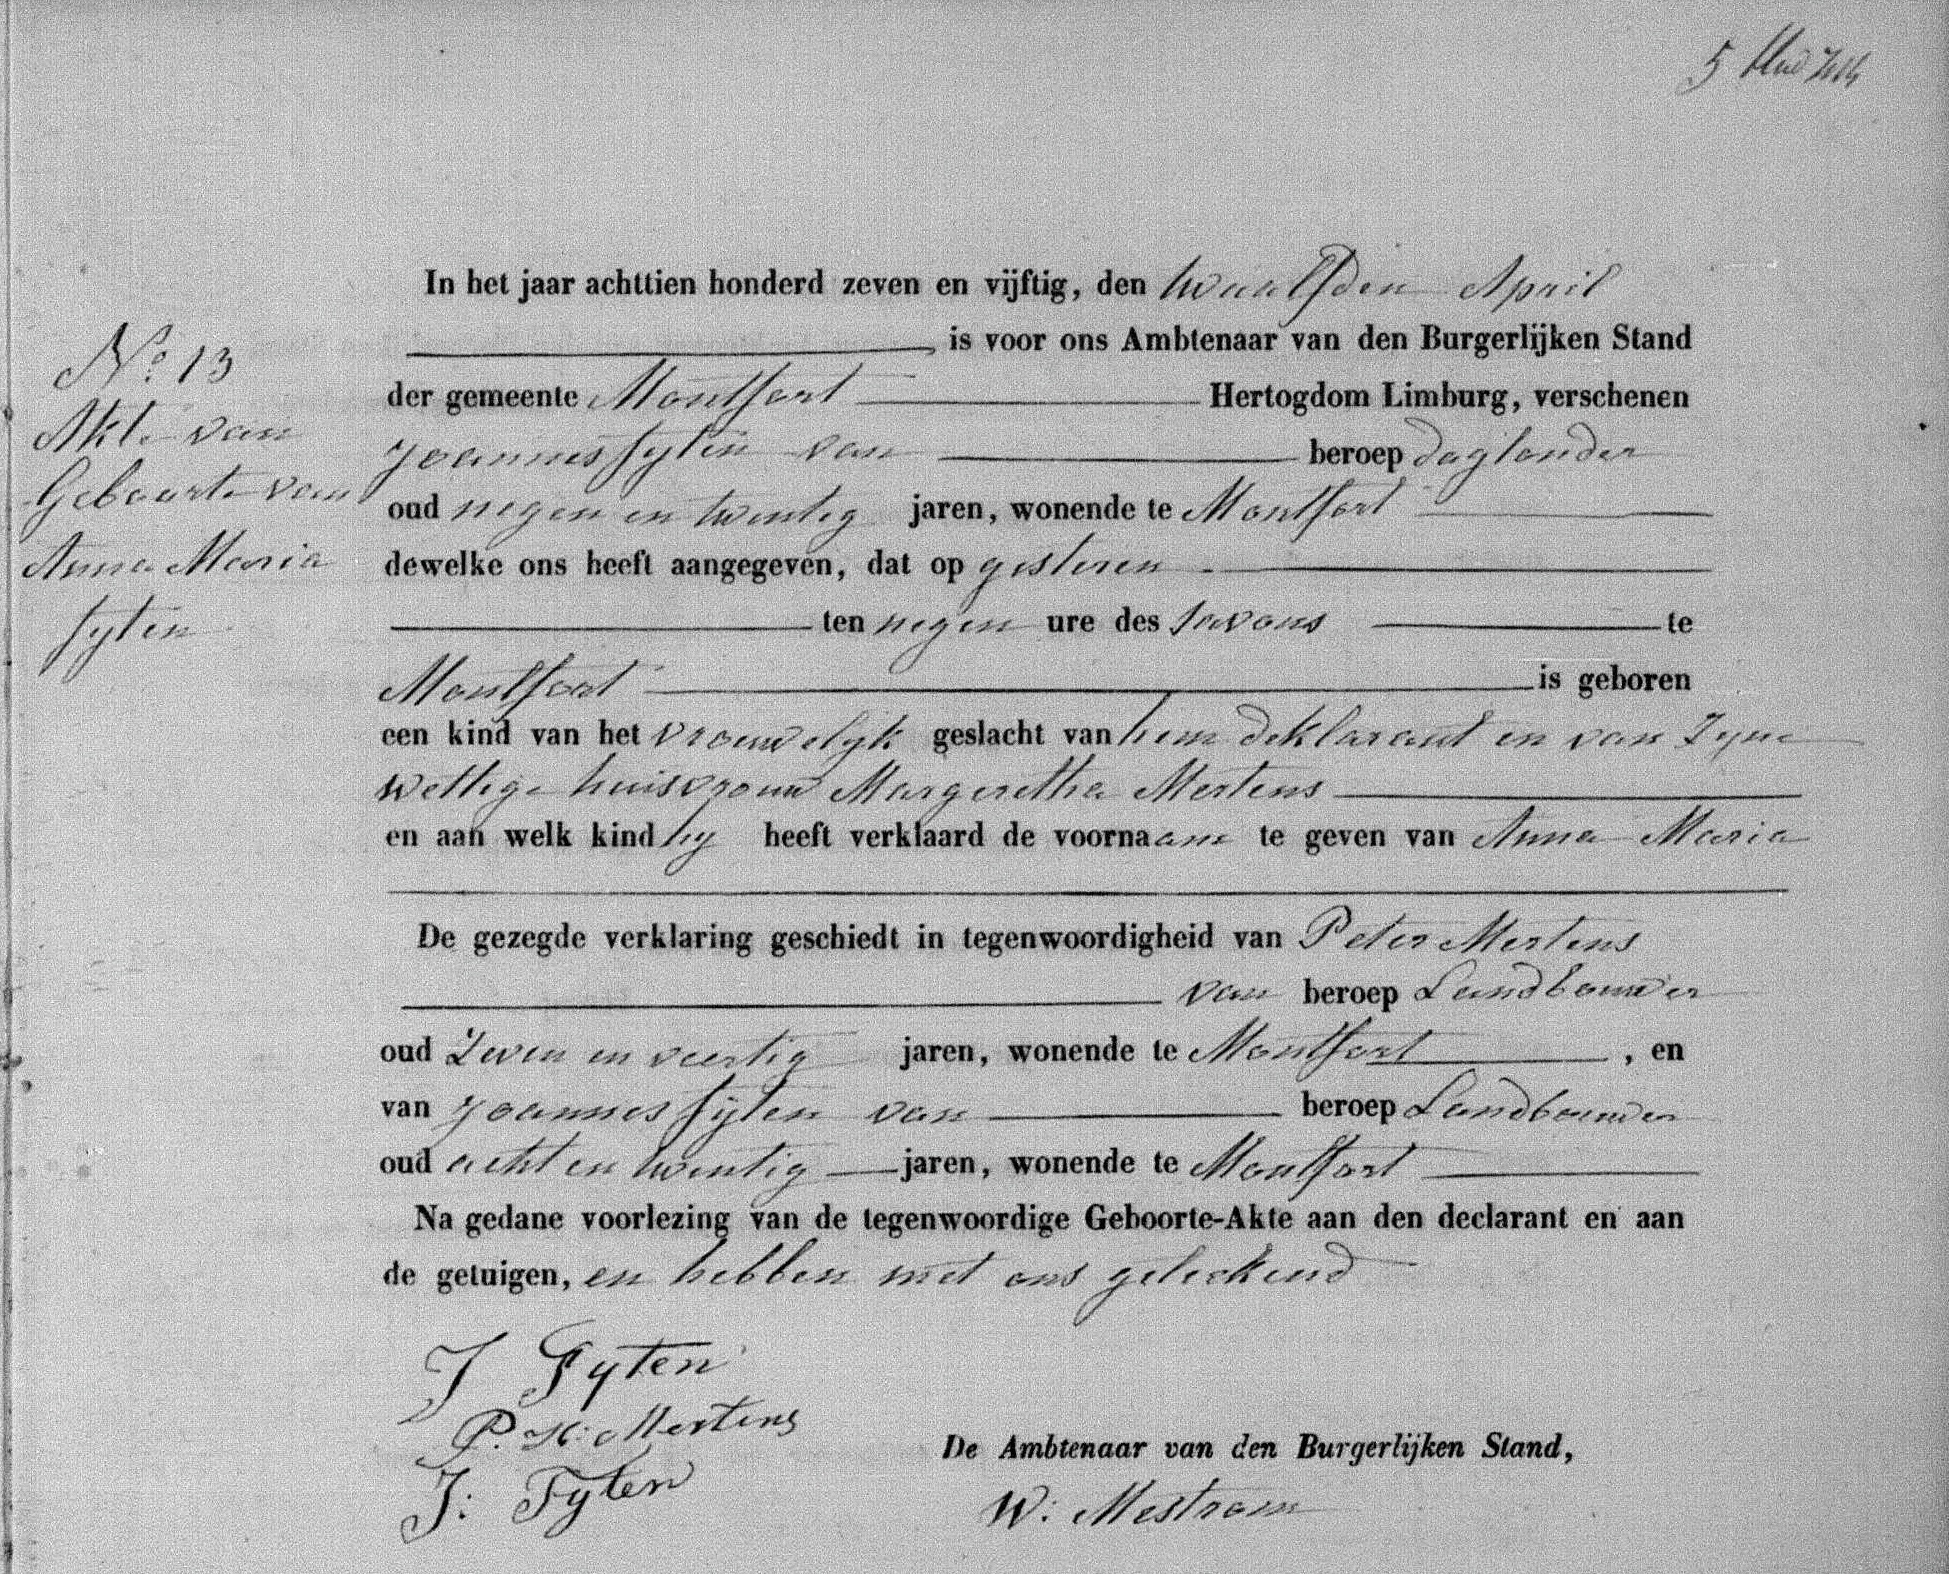 In het jaar achttien honderd zeven en vijftig, den twaalfden April
is voor ons Ambtenaar van den Burgerlijken Stand
der gemeente Montfort Hertogdom Limburg, verschenen
Joannes fyten van beroep daglonder
oud negen en twintig jaren, wonende te Montfort
dewelke ons heeft aangegeven, dat op gisteren
ten negen ure des savons te
Montfort is geboren
een kind van het vrouwelyk geslacht van hem deklarant en van Zyne
wettige huisvrouw Margeretha Mertens
en aan welk kind hy heeft verklaard de voornaame te geven van Anna Maria
De gezegde verklaring geschiedt in tegenwoordigheid van Peter Mertens
van beroep Landbouwer
oud Zeven en veertig jaren, wonende te Montfort , en
van Joannes fyten van beroep Landbouwer
oud acht en twintig jaren, wonende te Montfort
Na gedane voorlezing van de tegenwoordige Geboorte-Akte aan den declarant en aan
de getuigen, en hebben met ons geteekend
No. 13
Akte van
Geboorte van
Anna Maria
fyten
J Fyten
P. H: Mertens
J: Fyten
De Ambtenaar van den Burgerlijken Stand,
W: Mestrom